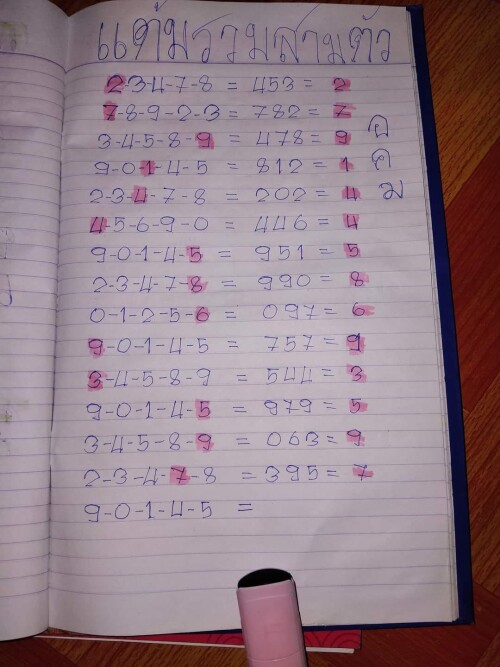 แต้มรวมสามตัว
2-3-4-7-8 = 453 = 2
7-8-9-2-3 = 782 = 7
3-4-5-8-9 = 478 = 9
9-0-1-4-5 = 812 = 1
2-3-4-7-8 = 202 = 4
4-5-6-9-0 = 446 = 4
9-0-1-4-5 = 951 = 5
2-3-4-7-8 = 990 = 8
0-1-2-5-6 = 097 = 6
9-0-1-4-5 = 757 = 9
3-4-5-8-9 = 544 = 3
9-0-1-4-5 = 979 = 5
3-4-5-8-9 = 063 = 9
2-3-4-7-8 = 395 = 7
9-0-1-4-5 =